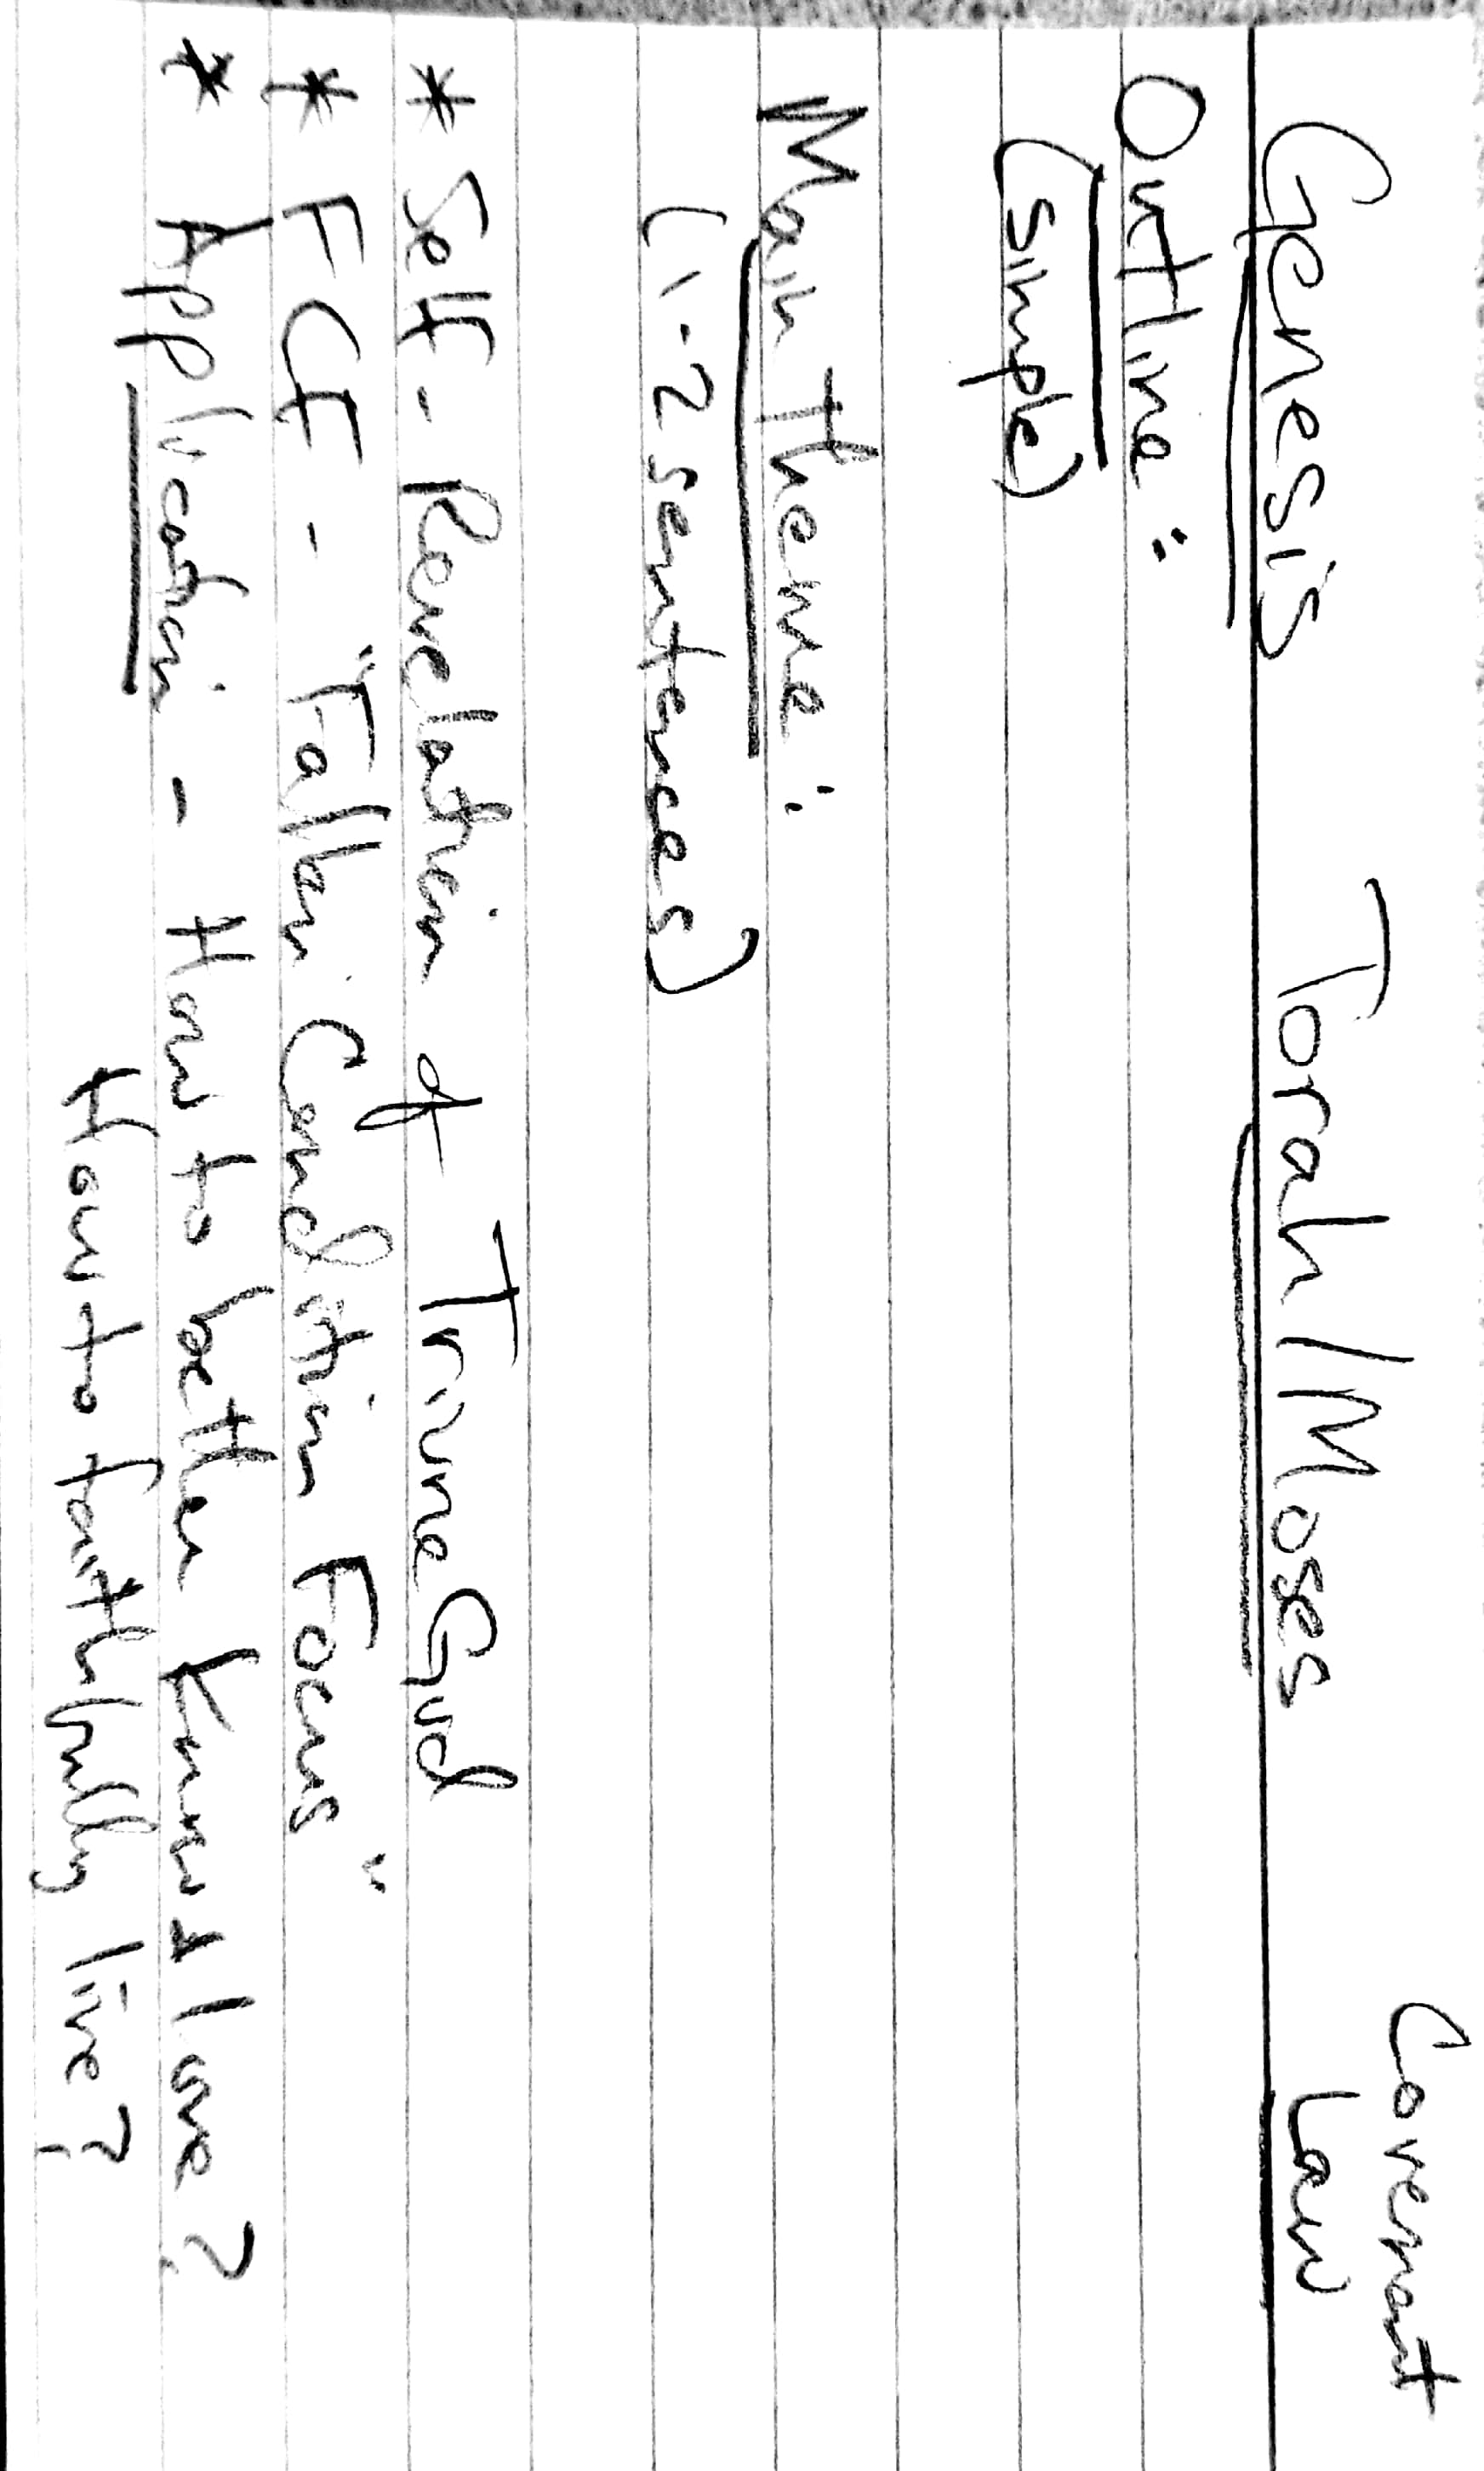 Genesis Torah/Moses Covenant Law
Outline:
(simple)
Main Theme:
(1-2 sentences)
* Self-Revelation of Triune God
* FCF - "Fallen Condition Focus"
* Application - How to better know & love?
How to faithfully live?